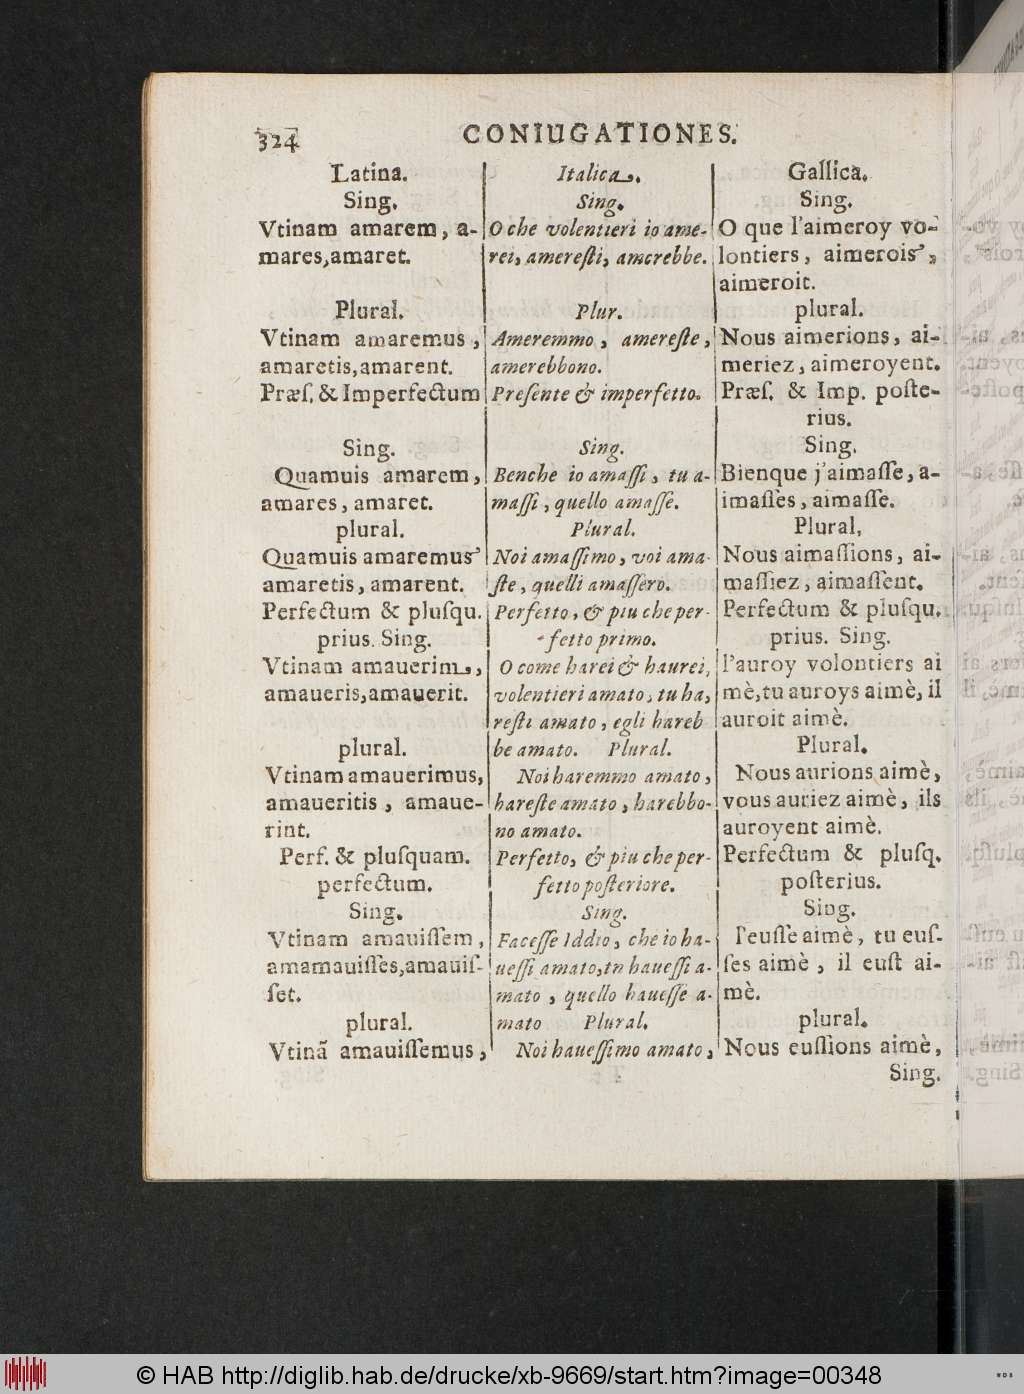 324 CONIUGATIONES.
Latina.
Sing.
Vtinam amarem, a-
mares, amaret.
Plural.
Vtinam amaremus,
amaretis, amarent.
Præſ. & Imperfectum
Sing.
Quamuis amarem,
amares, amaret.
plural.
Quamuis amaremus
amaretis, amarent.
Perfectum & pluſqu.
prius. Sing.
Vtinam amauerim,
amaueris, amauerit.
plural.
Vtinam amauerimus,
amaueritis, amaue-
rint.
Perf. & pluſquam.
perfectum.
Sing.
Vtinam amauiſſem,
amamauiſſes, amauiſ-
ſet.
plural.
Vtinã amauiſſemus,
Italica.
Sing.
O che volentieri io ame-
rei, amereſti, amerebbe.
Plur.
Ameremmo, amereſte,
amerebbono.
Preſente & imperfetto.
Sing.
Benche io amaſſi, tu a-
maſſi, quello amaſſe.
Plural.
Noi amaſſimo, voi ama-
ſte, quelli amaſſero.
Perfetto, & piu che per-
fetto primo.
O come harei & haurei,
volentieri amato, tu ha,
reſti amato, egli hareb
be amato. Plural.
Noi haremmo amato,
hareſte amato, harebbo-
no amato.
Perfetto, & piu che per-
fetto poſteriore.
Sing.
Faceſſe Iddio, che io ha-
ueſſi amato, tn haueſſi a-
mato, quello haueſſe a-
mato Plural.
Noi haueſſimo amato,
Gallica.
Sing.
O que l'aimeroy vo-
lontiers, aimerois,
aimeroit.
plural.
Nous aimerions, ai-
meriez, aimeroyent.
Præſ. & Imp. poſte-
rius.
Sing.
Bienque j'aimaſſe, a-
imaſſes, aimaſſe.
Plural,
Nous aimaſſions, ai-
maſſiez, aimaſſent.
Perfectum & pluſqu.
prius. Sing.
l'auroy volontiers ai
mè, tu auroys aimè, il
auroit aimè.
Plural.
Nous aurions aimè,
vous auriez aimè, ils
auroyent aimè.
Perfectum & pluſq.
poſterius.
Sing.
l'euſſe aimè, tu euſ-
ſes aimè, il euſt ai-
mè.
plural.
Nous euſſions aimè,
Sing.
© HAB http://diglib.hab.de/drucke/xb-9669/start.htm?image=00348